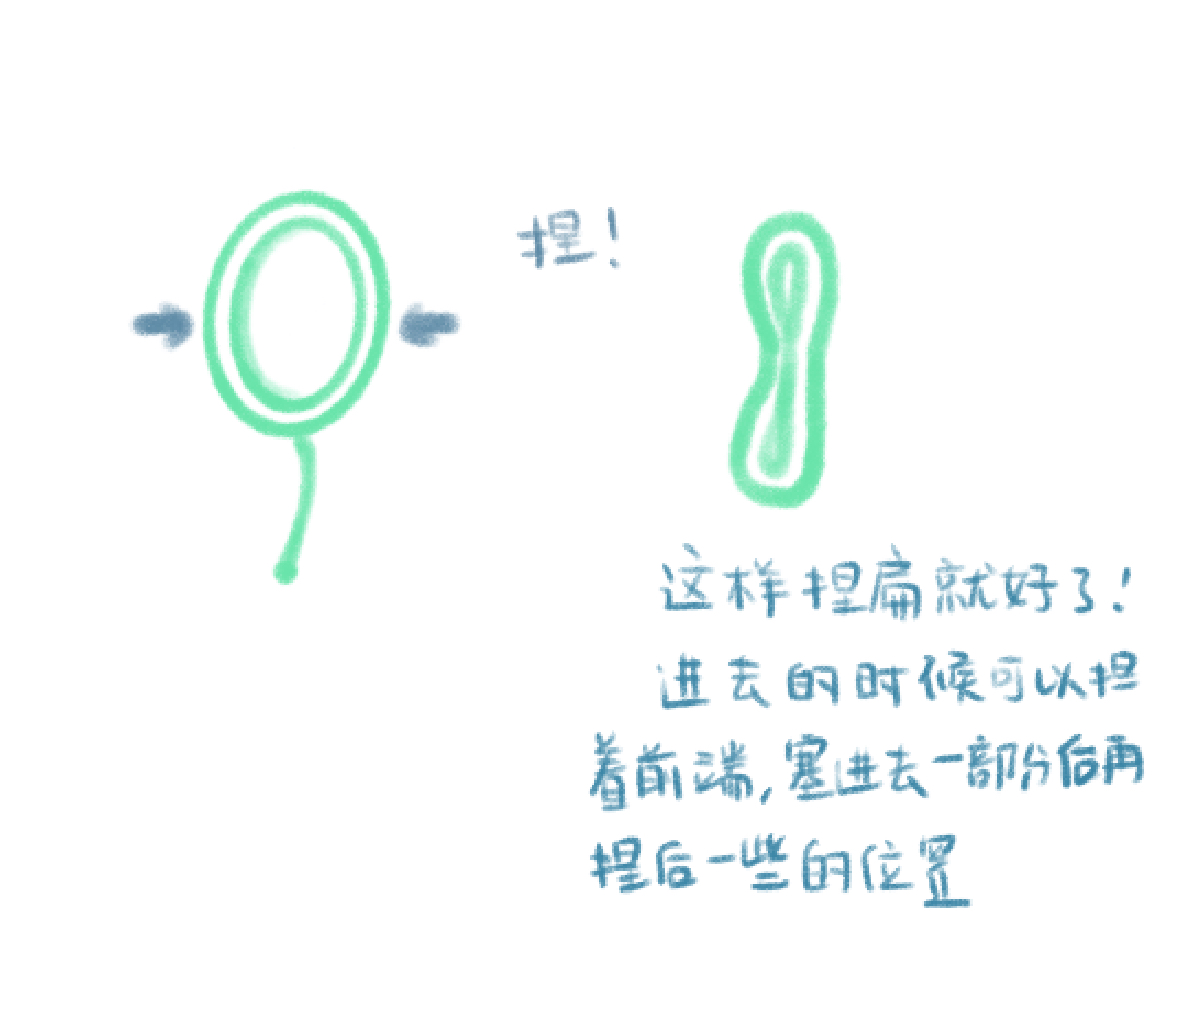 捏！
这样捏扁就好了！
进去的时候可以捏
着前端，塞进去一部分后再
捏后一些的位置